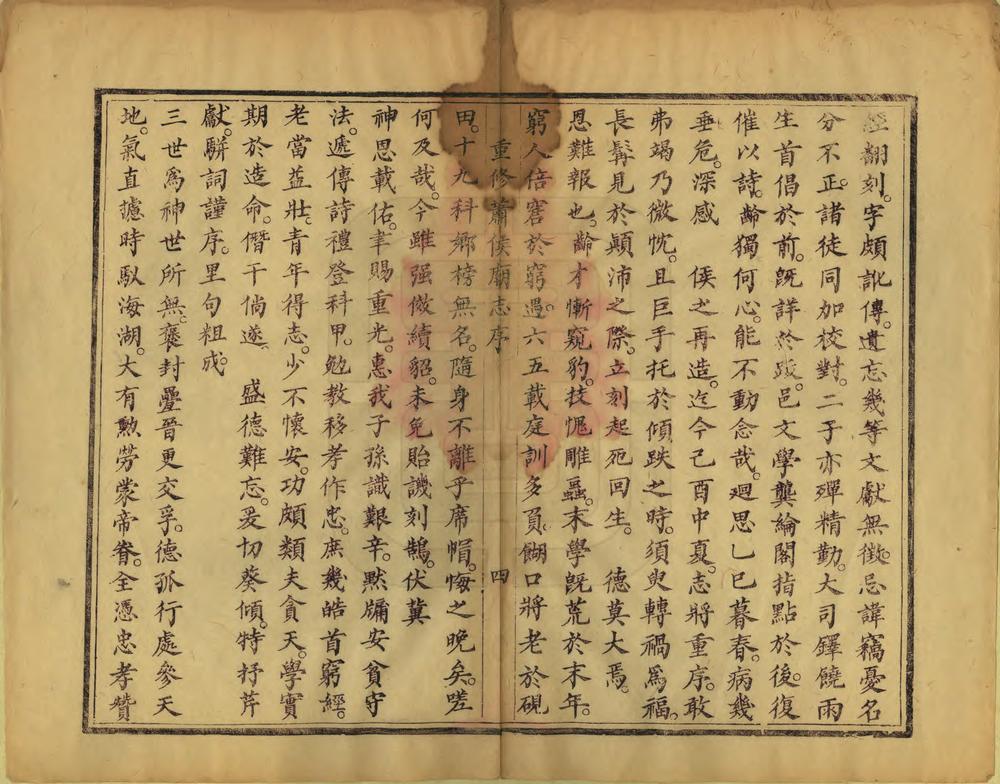 經翻刻。字頗訛傳。遺忘幾等文獻無徵。忌諱竊憂名
分不正。諸徒同加校對。二子亦殫精勤。大司鐸饒雨
生首倡於前。旣詳於跋。邑文學龔綸閣指點於後。復
催以詩。齡獨何心。能不動念哉。廻思乙巳暮春。病幾
垂危。深感　侯之再造。迄今己酉中夏。志將重序。敢
弗竭乃微忱。且巨手托於傾跌之時。須臾轉禍爲福。
長髯見於顚沛之際。立刻起死回生。　德莫大焉。
恩難報也。齡才慚窺豹。技愧雕蟲。末學旣荒於末年。
窮人倍窘於窮遇。六五載庭訓多負。餬口將老於硯
重修蕭侯廟志序　四
田。十九科鄉榜無名。隨身不離乎席帽。悔之晚矣。嗟
何及哉。今雖强倣續貂。未免貽譏刻鵠。伏冀
神思載佑。聿賜重光。惠我子孫識艱辛。默牖安貧守
法。遞傳詩禮登科甲。勉教移孝作忠。庶幾皓首窮經。
老當益壯。青年得志。少不懷安。功頗類夫貪天。學實
期於造命。僭干倘遂　盛德難忘。爰切葵傾。特抒芹
獻。駢詞謹序。里句粗成。
三世爲神世所無。褒封疊晉更交孚。德孤行處參天
地。氣直攄時馭海湖。大有勲勞裳帝眷。全憑忠孝贊